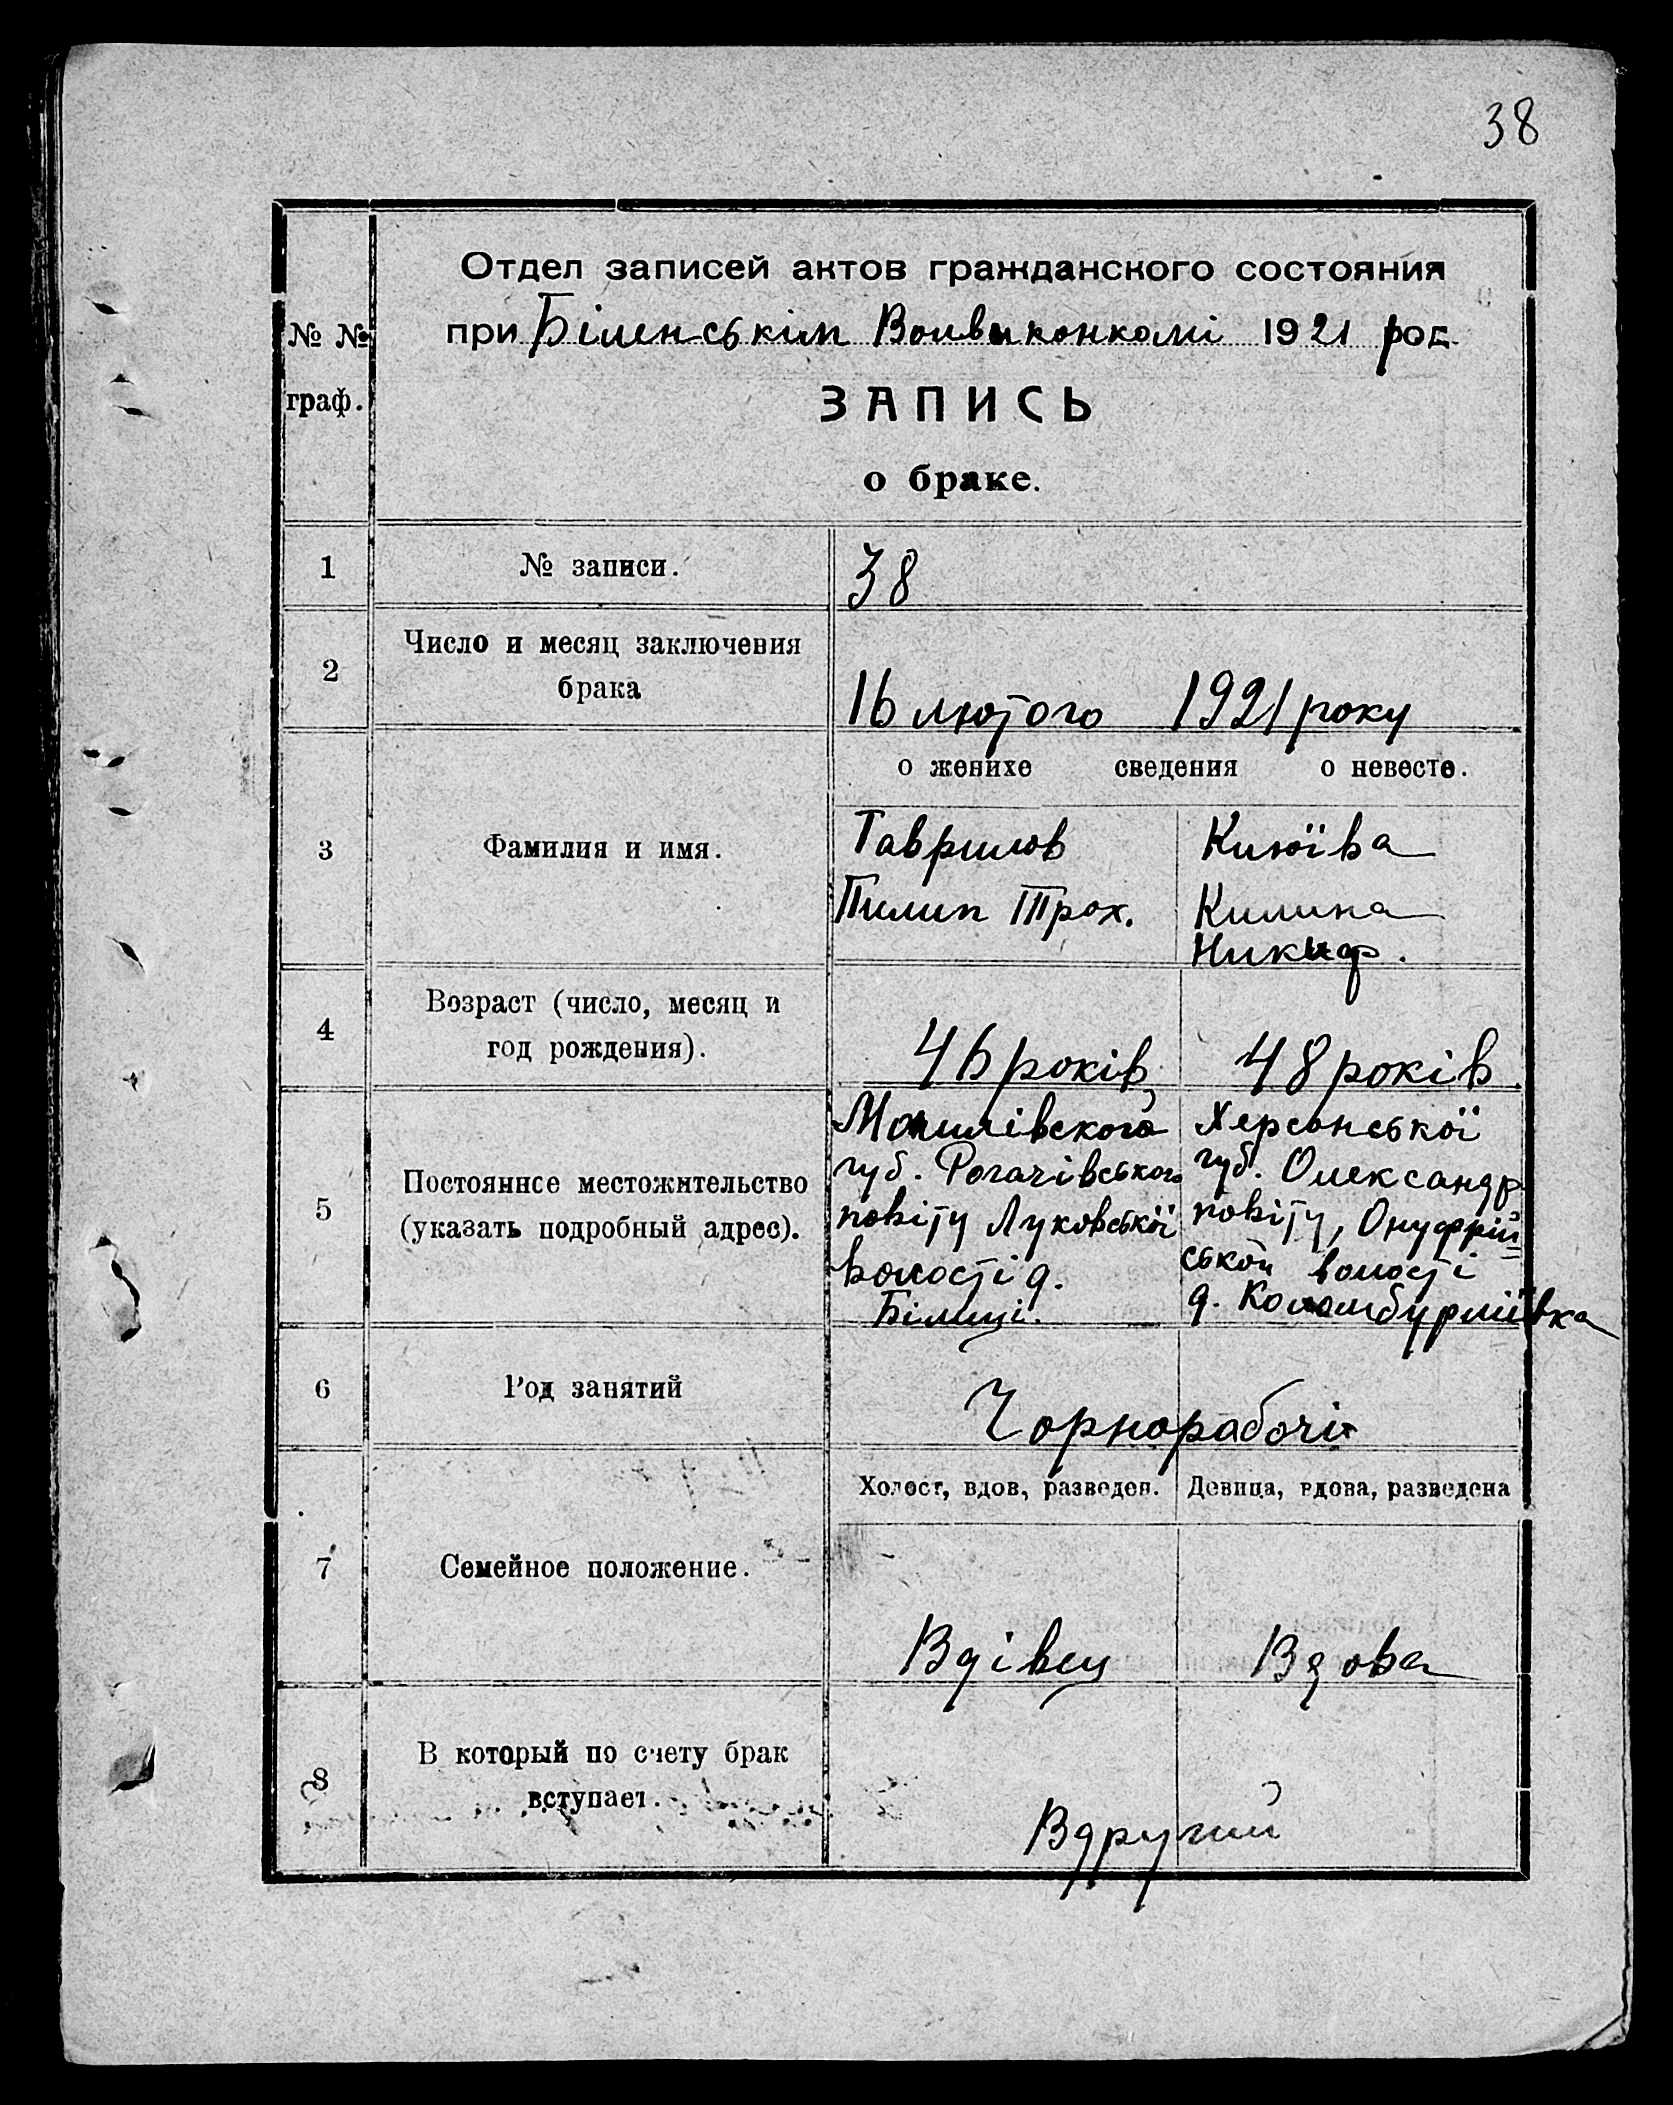 38
Отдел записей актов гражданского состояния
при Біленськім Волвиконкомі 1921 род.
№ №
граф.
ЗАПИСЬ
о браке.
1 № записи. 38
2 Число и месяц заключения
брака
16 лютого 1921 року
о женихе сведения о невесте.
3 Фамилия и имя.
Гаврилов
Пилип Трох.
Килина
Никиф.
4 Возраст (число, месяц и
год рождения).
46 років 48 років
5 Постоянное местожительство
(указать подробный адрес).
Могилівского
губ. Рогачівського
повіту Луковської
волості д.
Білиці.
Херсонської
губ. Олександр
повіту, Онуфрій-
ской волості
д.
6 Род занятий
Чорнорабочі
7 Семейное положение.
Холост, вдов, разведен. Девица, вдова, разведена
Вдівец Вдова
8 В который по счету брак
вступает.
Вдругий